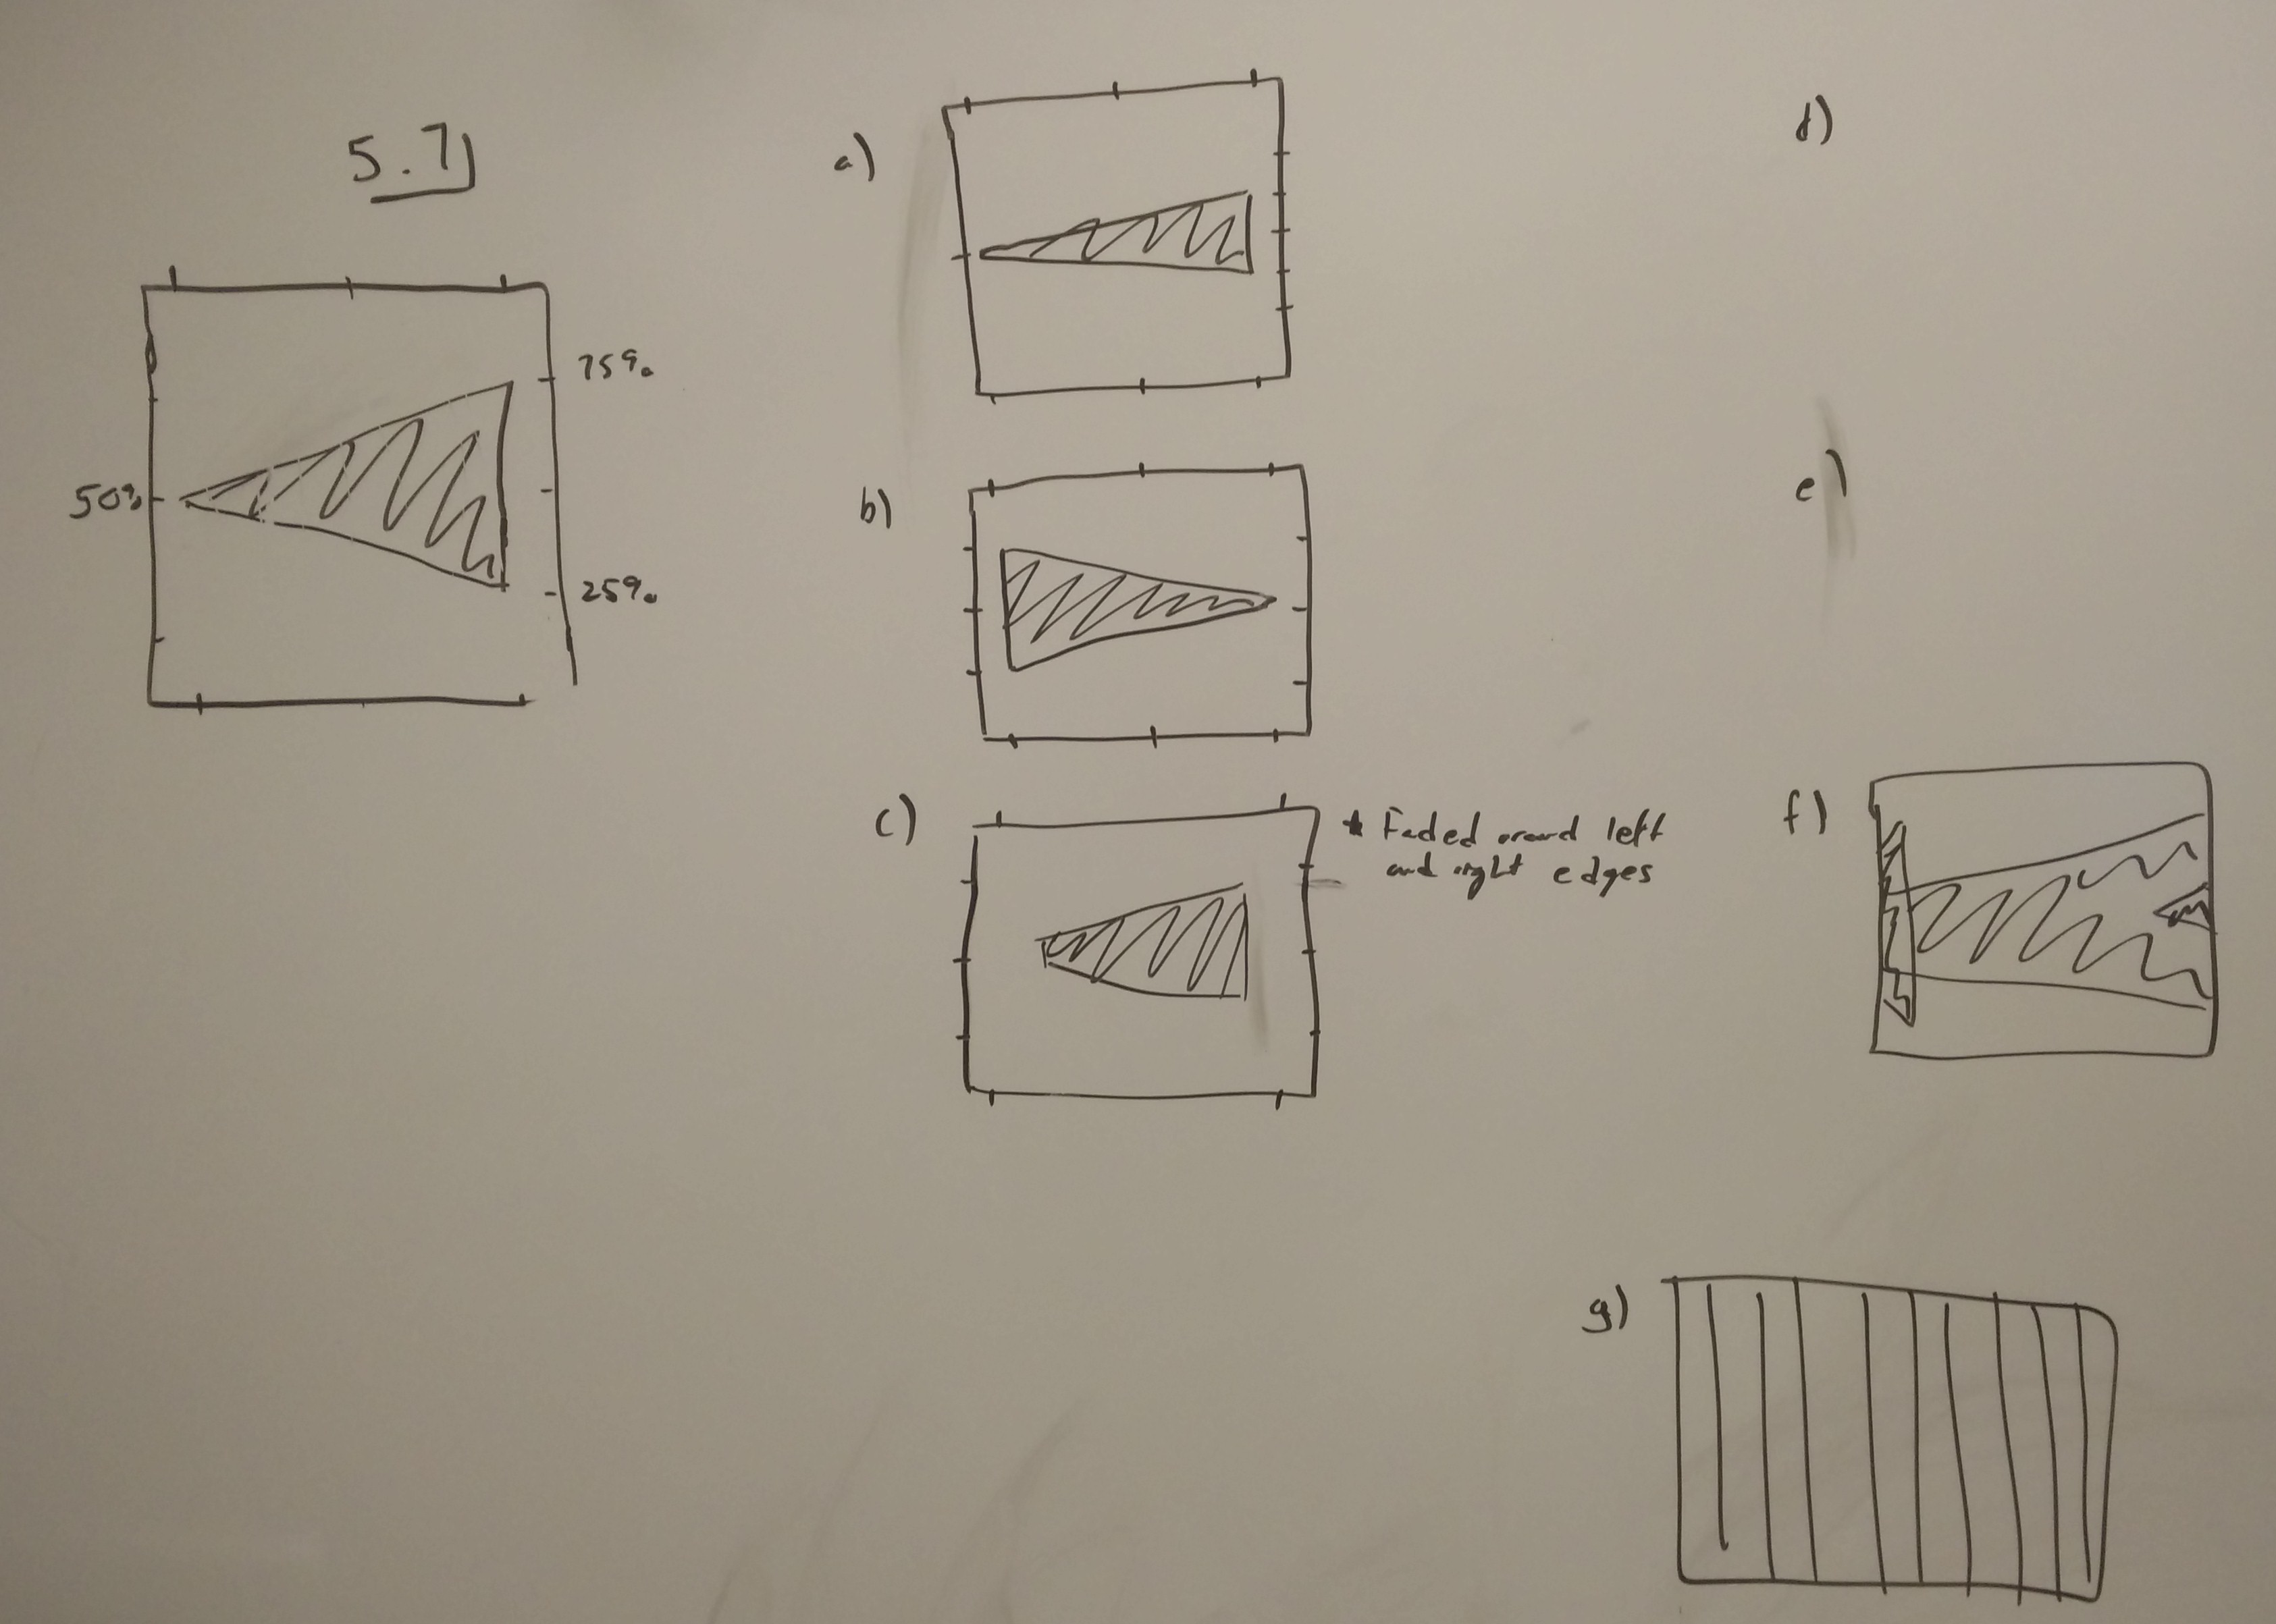 5.7
75%
50%
25%
a)
b)
c)
* Faded around left
and right edges
d)
e)
f)
g)